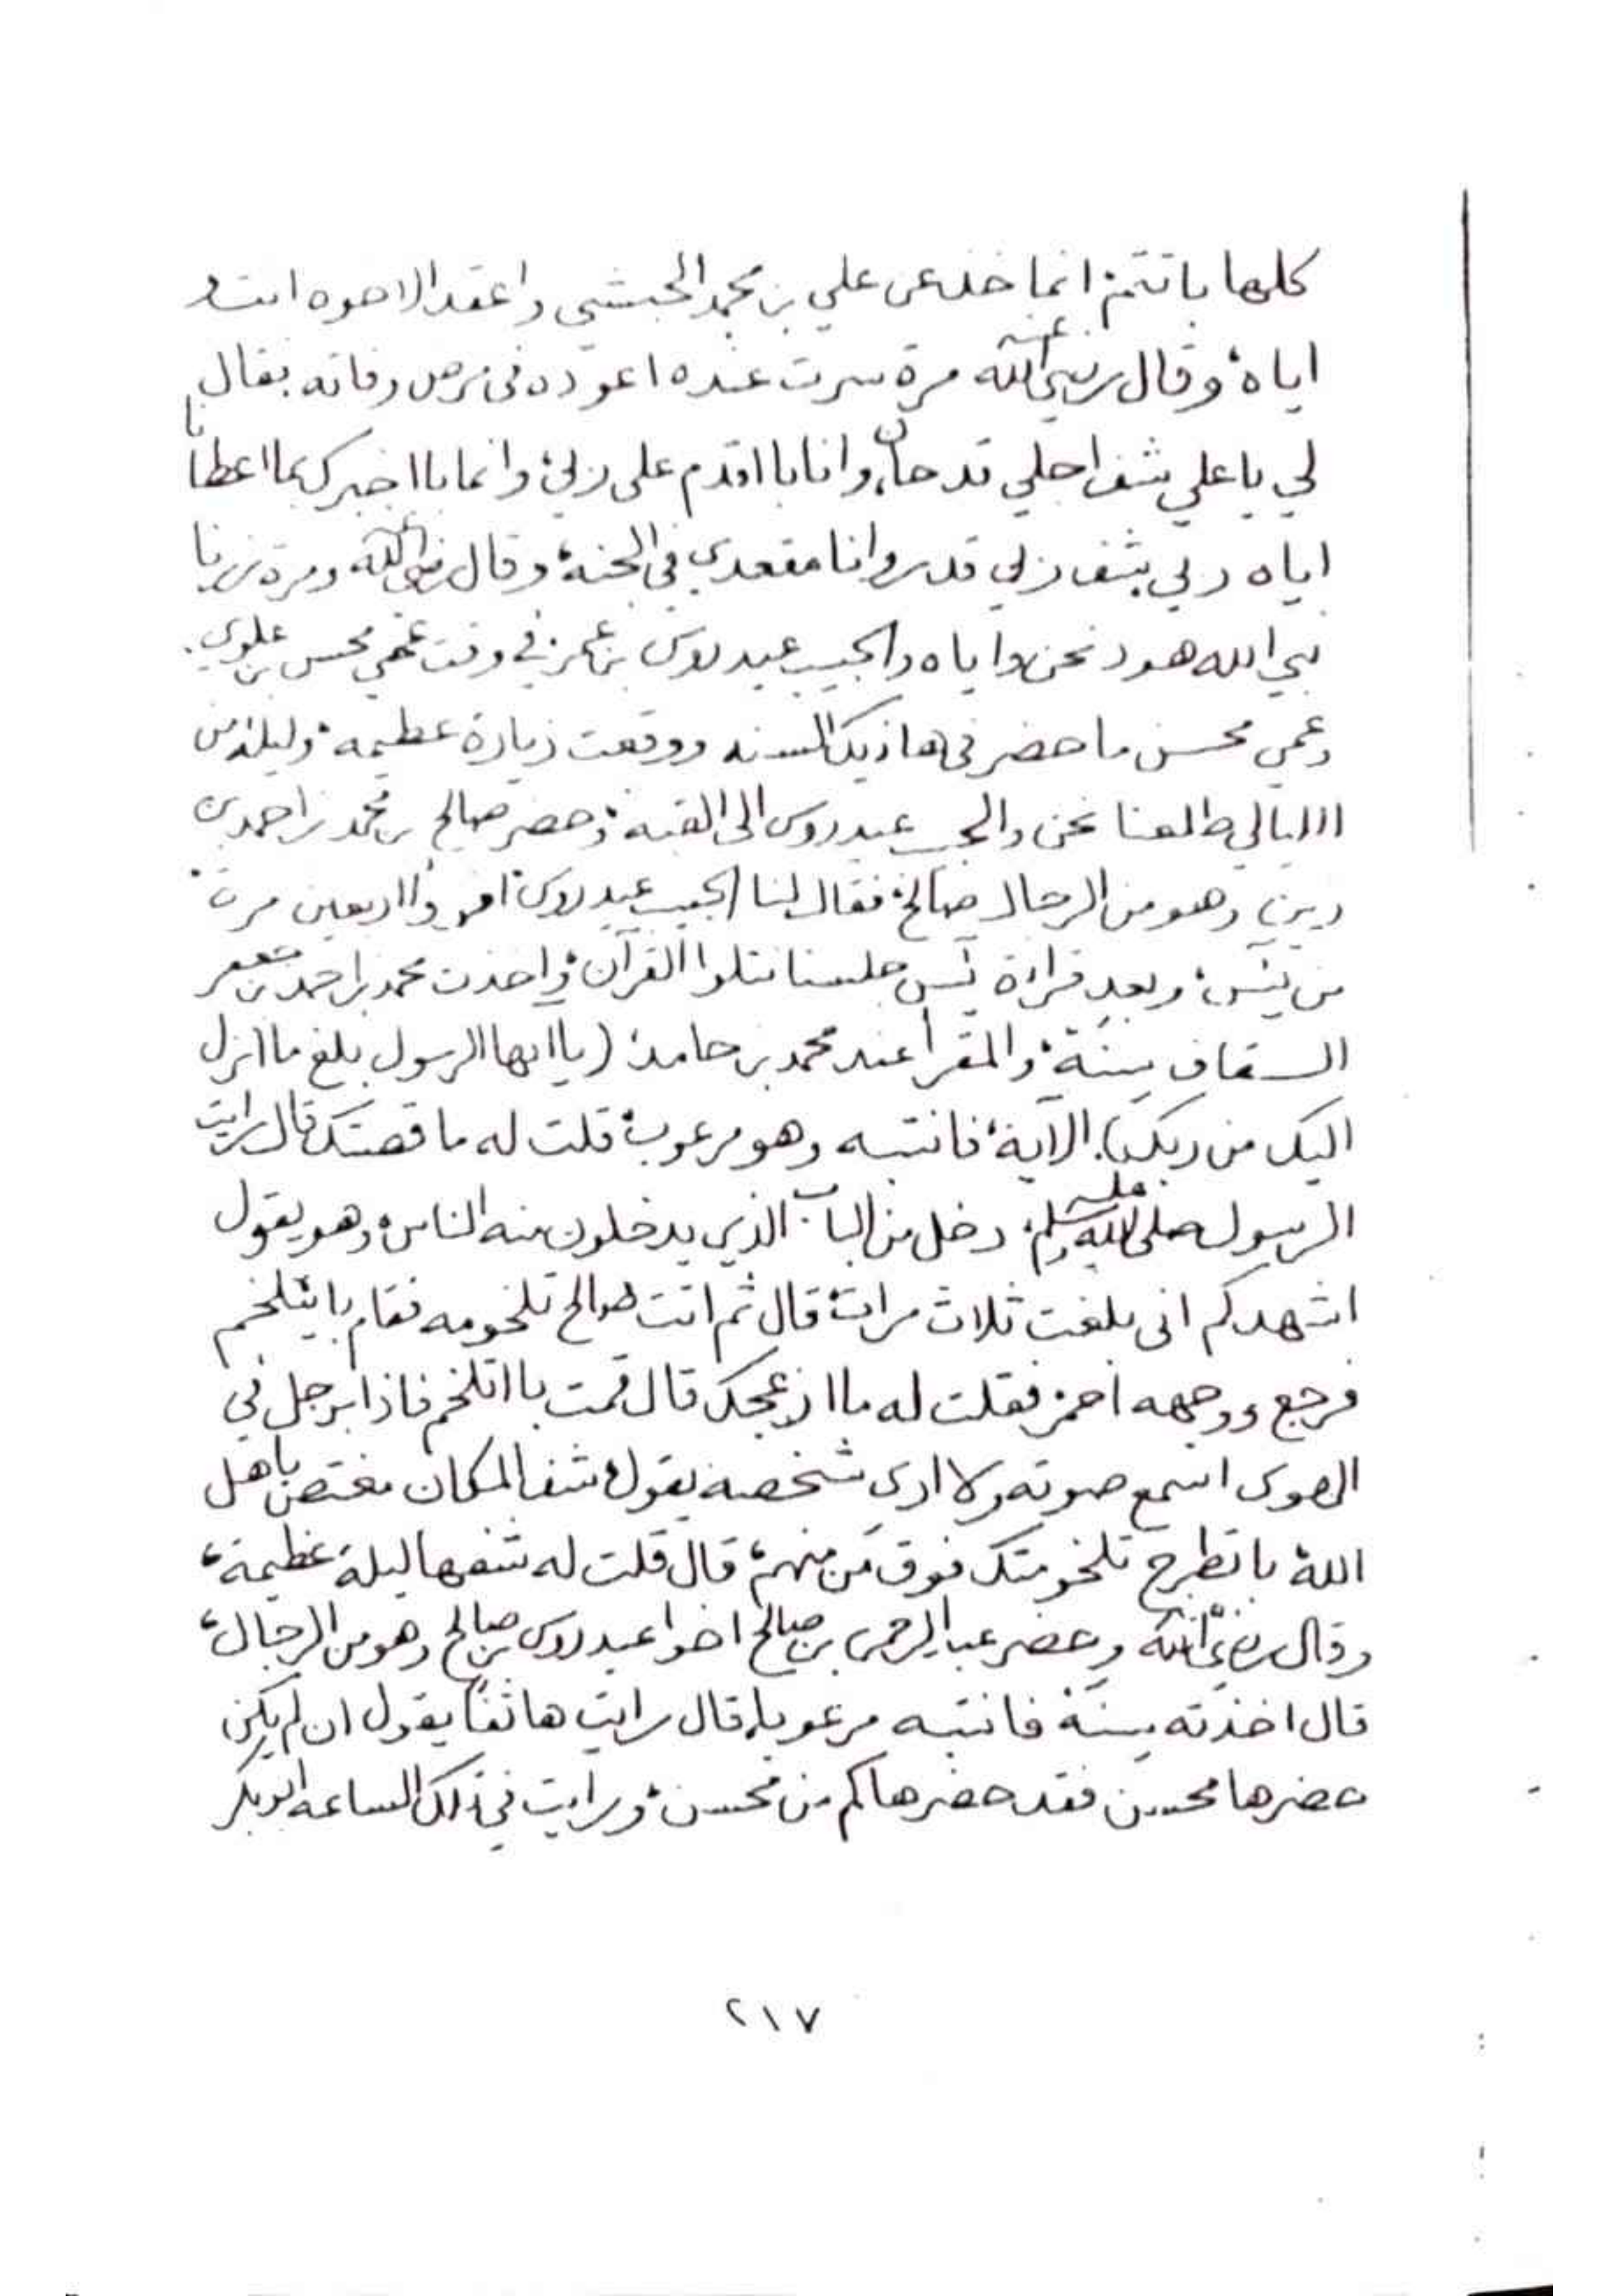 كلها باتتم، انما خذ عن علي بن محمد الحبشي واعقد الاخوه انت و
اياه، وقال رضي الله عنه مرة سرت عنده اعوده في مرض وفاته فقال
لي يا علي شف اجلي قد حان، وانا با اقدم على ربي، وانما با اخبرك بما اعطانا
اياه ربي شف ربي قد روانا مقعدي في الجنة، وقال رضي الله عنه ومرة زرنا
نبي الله هود نحن واياه والحبيب عيدروس بن عمر، في وقت عمي محسن بن علوي.
وعمي محسن ما حضر في هاذيك السنه ووقعت زيارة عظيمه، وليلة من
الليالي طلعنا نحن والحبيب عيدروس الى القبه، وحضر صالح بن محمد بن احمد بن
وهو من الرجال صالح، فقال لنا الحبيب عيدروس، اقرؤا اربعين مرة
من يٓس، وبعد قراءة يٓس جلسنا نتلوا القرآن، واخذت محمد بن احمد بن جعفر
السقاف سِنَة، والمقرأ عند محمد بن حامد، (يا ايها الرسول بلغ ما انزل
اليك من ربك) الآية، فانتبه وهو مرعوب، قلت له ما قصتك قال رايت
الرسول صلى الله عليه وسلم، دخل من الباب الذي يدخلون منه الناس، وهو يقول
اشهدكم انى بلغت ثلاث مرات، قال ثم اتت صالح تلخومه فقام با يتلخم
فرجع ووجهه احمر، فقلت له ما ازعجك قال قمت با اتلخم فاذا برجل في
الهوى اسمع صوته ولا ارى شخصه يقول، شف المكان مغتص باهل
الله، با تطرح تلخومتك فوق مَن منهم، قال قلت له شفها ليلة عظيمة،
وقال رضي الله عنه وحضر عبد الرحمن بن صالح اخوا عيدروس بن صالح وهو من الرجال،
قال اخذته سِنَة، فانتبه مرعوبا، قال رايت هاتفًا يقول ان لم يكن
حضرها محسن فقد حضرها كم من محسن، ورايت في ذلك الساعه ابوبكر
٢١٧